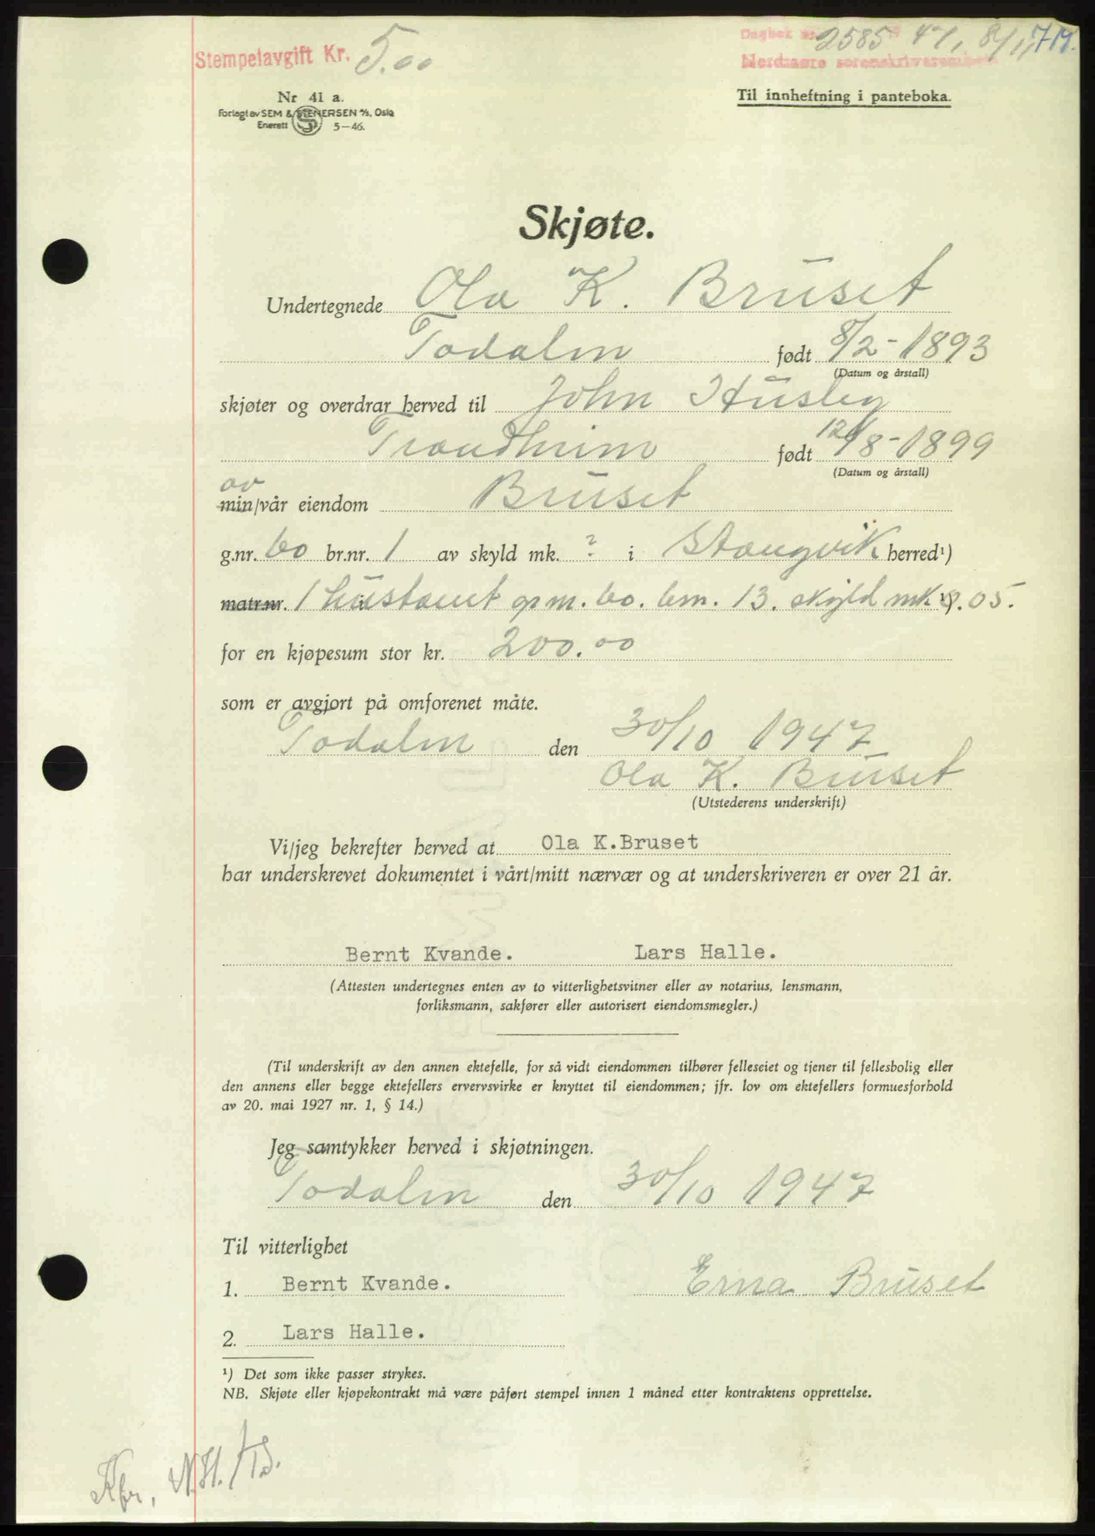 Stempelavgift Kr. 5.00
Dagbok nr. 2585 47, 8/11 719.
Nordmøre sorenskriverembete
Nr 41 a.
Forlagt av SEM & STENERSEN A/S, Oslo
Enerett 5-46.
Til innheftning i panteboka.
Skjøte.
Undertegnede Ola K. Bruset
Todalen født 8/2-1893
(Datum og årstall)
skjøter og overdrar herved til John Husby
Trondheim født 12/8-1899
(Datum og årstall)
av
min/vår eiendom Bruset
g.nr. 60 br.nr. 1 av skyld mk. ? i Stangvik herred¹)
matr.nr. 1 hustomt gr.n. 60. br.n. 13. skyld mk 0.05.
for en kjøpesum stor kr. 200.00
som er avgjort på omforenet måte.
Todalen den 30/10 1947
Ola K. Bruset
(Utstederens underskrift)
Vi/jeg bekrefter herved at Ola K.Bruset
har underskrevet dokumentet i vårt/mitt nærvær og at underskriveren er over 21 år.
Bernt Kvande. Lars Halle.
(Attesten undertegnes enten av to vitterlighetsvitner eller av notarius, lensmann,
forliksmann, sakfører eller autorisert eiendomsmegler.)
(Til underskrift av den annen ektefelle, for så vidt eiendommen tilhører felleseiet og tjener til fellesbolig eller
den annens eller begge ektefellers ervervsvirke er knyttet til eiendommen; jfr. lov om ektefellers formuesforhold
av 20. mai 1927 nr. 1, § 14.)
Jeg samtykker herved i skjøtningen.
Todalen den 30/10 1947
Til vitterlighet
1. Bernt Kvande. Erna Bruset
2. Lars Halle.
¹) Det som ikke passer strykes.
NB. Skjøte eller kjøpekontrakt må være påført stempel innen 1 måned etter kontraktens opprettelse.
Kfr, N.H./TS.